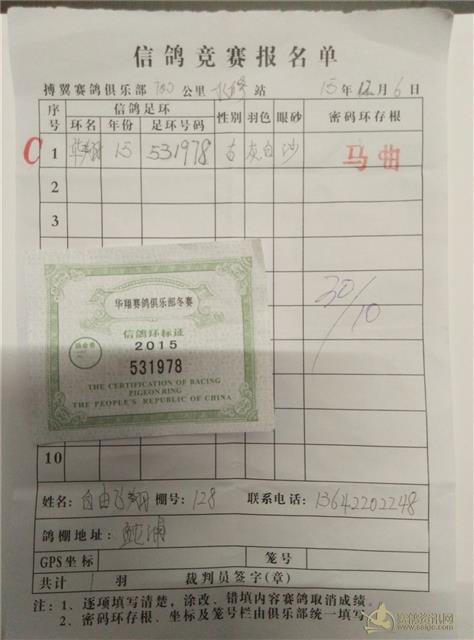 信鸽竞赛报名单
搏翼赛鸽俱乐部 700 公里 站 15 年 12 月 6 日
序号 信鸽足环 性别 羽色 眼砂 密码环存根
环名 年份 足环号码
C 1 华翔 15 531978 灰白 沙 马曲
2
3
30/10
华翔赛鸽俱乐部冬赛
信鸽环标证
2015
531978
THE CERTIFICATION OF RACING
PIGEON RING
THE PEOPLE'S REPUBLIC OF CHINA
10
姓名: 自由飞翔 棚号: 128 联系电话: 13642202248
鸽棚地址:
GPS坐标 笼号
共计 1 羽 裁判员签字(章)
注:1、逐项填写清楚,涂改、错填内容赛鸽取消成绩。
2、密码环存根、坐标及笼号栏由俱乐部统一填写